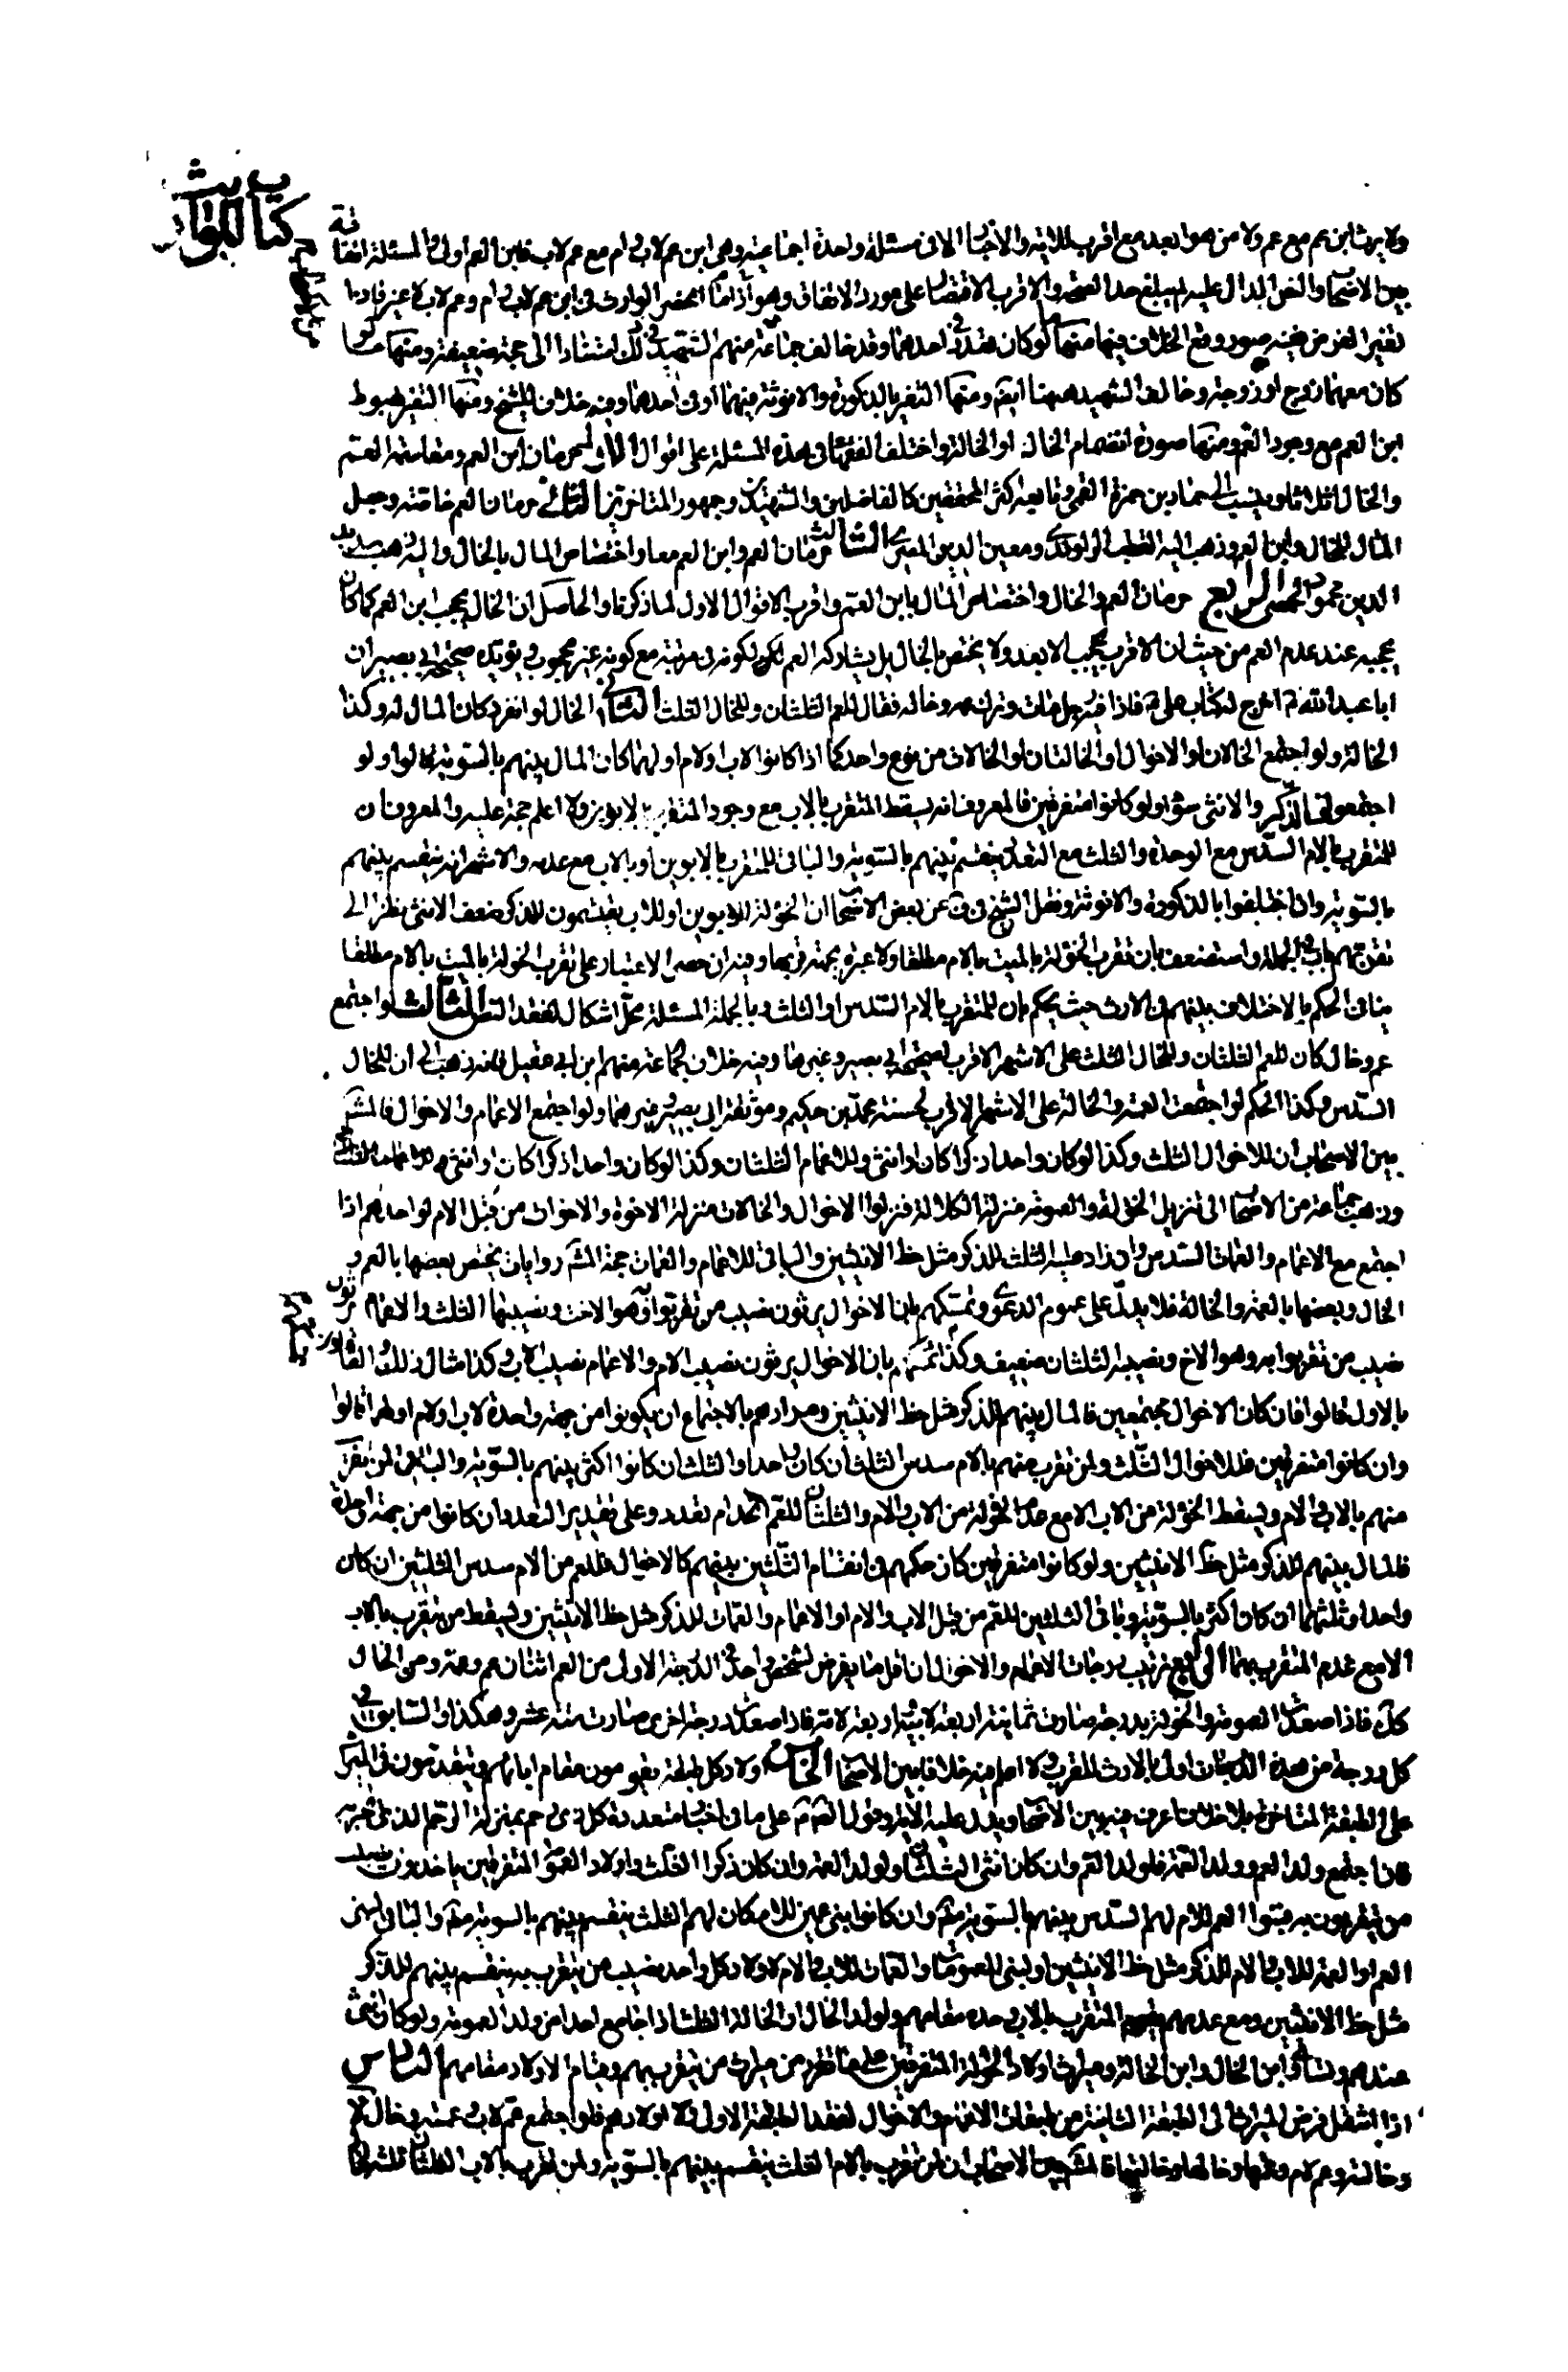 كتاب المواريث
ولا يرث ابن عم مع عم ولا من هو ابعد مع اقرب للاية والاخبار الا فى مسئلة واحدة اجماعية وهى ابن عم لاب وام مع عم لاب فابن العم اولى والمسئلة اتفاقية
بين الاصحاب والنص الدال عليه لم يبلغ حد الصحة والاقرب الاقتصار على مورد الاتفاق وهو اذا انحصر الوارث فى ابن عم لاب وام وعم لاب لا غير فاذا
تغير الفرض وقع الخلاف فيها منها لو كان تعدد فى احدهما وقد خالف جماعة منهم الشهيد فى ذلك استنادا الى حجة ضعيفة ومنها ما لو
كان معهما زوج او زوجة وخالف الشهيد ههنا ايضا ومنها التغير بالذكورة والانوثة فيهما او فى احدهما وفيه خلاف للشيخ ومنها التغير بهبوط
ابن العم مع وجود العم ومنها صورة انضمام الخال او الخالة واختلف الفقهاء فى هذه المسئلة على اقوال الاول حرمان ابن العم ومقاسمة العم
والخال اثلاثا وينسب الى عماد بن حمزة القمى وتابعه اكثر المحققين كالفاضلين والشهيدين وجمهور المتاخرين الثانى حرمان العم خاصة وجعل
المال للخال وابن العم وذهب اليه القطب الراوندى ومعين الدين المصرى الثالث حرمان العم وابن العم معا واختصاص المال بالخال واليه ذهب سديد
الدين محمود الحمصى الرابع حرمان العم والخال واختصاص المال بابن العم واقرب الاقوال الاول لما ذكرنا والحاصل ان الخال يحجب ابن العم كما كان
يحجبه عند عدم العم من حيث ان الاقرب يحجب الابعد ولا يختص بالخال بل يشاركه العم لكونه فى مرتبته مع كونه غير محجوب ويؤيده صحيحة ابى بصير ان
ابا عبد الله ع اخرج له كتاب على ع فاذا فيه رجل مات وترك عمه وخاله فقال للعم الثلثان وللخال الثلث الثانى الخال لو انفرد كان المال له وكذا
الخالة ولو اجتمع الخالان او الاخوال او الخالتان او الخالات من نوع واحد كما اذا كانوا لاب او لام او لهما كان المال بينهم بالسوية قالوا ولو
اجتمعوا فالذكر والانثى سواء ولو كانوا متفرقين فالمعروف انه يسقط المتقرب بالاب مع وجود المتقرب بالابوين ولا اعلم حجة عليه والمعروف ان
للمتقرب بالام السدس مع الوحدة والثلث مع التعدد يقتسم بينهم بالسوية والباقى للمتقرب بالابوين او بالاب مع عدمه والاشهر انه ينقسم بينهم
بالسوية وان اختلفوا بالذكورة والانوثة ونقل الشيخ فى ف عن بعض الاصحاب ان الخؤلة للابوين او للاب يقتسمون للذكر ضعف الانثى نظرا الى
تقربهم باب فى الجملة واستضعف بان تقرب الخؤلة بالميت بالام مطلقا ولا عبرة بجهة قربها وفيه ان حصر الاعتبار على تقرب الخولة بالميت بالام مطلقا
ينافى الحكم بالاختلاف بينهم فى الارث حيث يحكم بان للمتقرب بالام السدس او الثلث وبالجملة المسئلة محل اشكال لفقد النص الثالث لو اجتمع
عم وخال كان للعم الثلثان وللخال الثلث على الاشهر الاقرب لصحيحة ابى بصير وغيرها وفيه خلاف لجماعة منهم ابن ابى عقيل فانه ذهب الى ان للخال
السدس وكذا الحكم لو اجتمعت العمة والخالة على الاشهر الاقرب لحسنة محمد بن حكيم وموثقة ابى بصير وغيرهما ولو اجتمع الاعمام والاخوال فالمشهور
بين الاصحاب ان للاخوال الثلث وكذا لو كان واحدا ذكرا كان او انثى وللاعمام الثلثان وكذا لو كان واحدا ذكرا كان او انثى
وذهب جماعة من الاصحاب الى تنزيل الخؤلة والعمومة منزلة الكلالة فنزلوا الاخوال والخالات منزلة الاخوة والاخوات من قبل الام لواحدهم اذا
اجتمع مع الاعمام والعمات السدس ولما زاد عليه الثلث للذكر مثل حظ الانثيين والباقى للاعمام والعمات حجة المشهور روايات يختص بعضها بالعم و
الخال وبعضها بالعمة والخالة فلا يدل على عموم الدعوى وتمسكهم بان الاخوال يرثون نصيب من تقربوا به وهو الاخت ونصيبها الثلث والاعمام يرثون
نصيب من تقربوا به وهو الاخ ونصيبه الثلثان ضعيف وكذا تمسكهم بان الاخوال يرثون نصيب الام والاعمام نصيب الاب وكذا مثال ذلك القائلون
بالاول قالوا فان كان الاخوال مجتمعين فالمال بينهم للذكر مثل حظ الانثيين ومرادهم بالاجتماع ان يكونوا من جهة واحدة لاب او لام او لهما قالوا
وان كانوا متفرقين فللاخوال الثلث ولمن تقرب منهم بالام سدس الثلث ان كان واحدا والثلث ان كانوا اكثر بينهم بالسوية والباقى لمن تقرب
منهم بالاب والام ويسقط الخؤلة من الاب الا مع عدم الخؤلة من الاب والام والثلثان للعم اتحد ام تعدد وعلى تقدير التعدد ان كانوا من جهة واحدة
فالمال بينهم للذكر مثل حظ الانثيين ولو كانوا متفرقين كان حكمهم فى اقتسام الثلثين بينهم كالاخوال فللعم من الام سدس الثلثين ان كان
واحدا وثلثهما ان كان اكثر بالسوية وباقى الثلثين للعم من قبل الاب والام او الاعمام والعمات للذكر مثل حظ الانثيين ويسقط من يتقرب بالاب
الا مع عدم المتقرب بهما الرابع ترتيب درجات الاعمام والاخوال ان اقل ما يفرض لشخص واحد فى الدرجة الاولى من العم اثنان عم وعمة ومن الخال
كل فاذا صعدت العمومة والخؤلة بدرجة صارت ثمانية اربعة لابيه واربعة لامه فاذا صعدت درجة اخرى صارت ستة عشر وهكذا والسابق فى
كل درجة من هذه الدرجات اولى بالارث للقرب ولا اعلم فيه خلافا بين الاصحاب الخامس اولاد كل طبقة يقومون مقام ابائهم ويتقدمون فى الميراث
على الطبقة المتاخرة بلا خلاف اعرف فيه بين الاصحاب ويدل عليه الاية وقوله ع على ما فى اخبار متعددة كل ذى رحم بمنزلة الرحم الذى يجر به
فاذا اجتمع ولد العم وولد العمة فلولد العم وان كان انثى الثلثان ولولد العمة وان كان ذكرا الثلث واولاد العمومة المتفرقين ياخذون نصيب
من يتقربون به فبنوا العم للام لهم السدس بينهم بالسوية وان كانوا بنى عمين للام كان لهم الثلث ينقسم بينهم بالسوية والباقى لبنى
العم او العمة للاب والام للذكر مثل حظ الانثيين او لبنى العمومة والعمات للاب والام لاولاد كل واحد نصيب من يتقرب به ينقسم بينهم للذكر
مثل حظ الانثيين ومع عدمهم يقوم المتقرب بالاب وحده مقامهم ولولد الخال او الخالة الثلث اذا جامع احدا من ولد العمومة ولو كان انثى
عندهم وتساوى ابن الخال وابن الخالة وميراث اولاد الخؤلة المتفرقين على ما ظهر من ميراث من يتقرب بهم وقيام الاولاد مقامهم السادس
اذا انتقل فرض الميراث الى الطبقة الثانية من طبقات الاعمام والاخوال لفقد الطبقة الاولى واولادهم فلو اجتمع عم الاب وعمته وخاله
وخالته وعم الام وعمتها وخالها وخالتها فالمشهور بين الاصحاب ان لمن تقرب بالام الثلث ينقسم بينهم بالسوية ولمن تقرب بالاب الثلثان ثلثهما